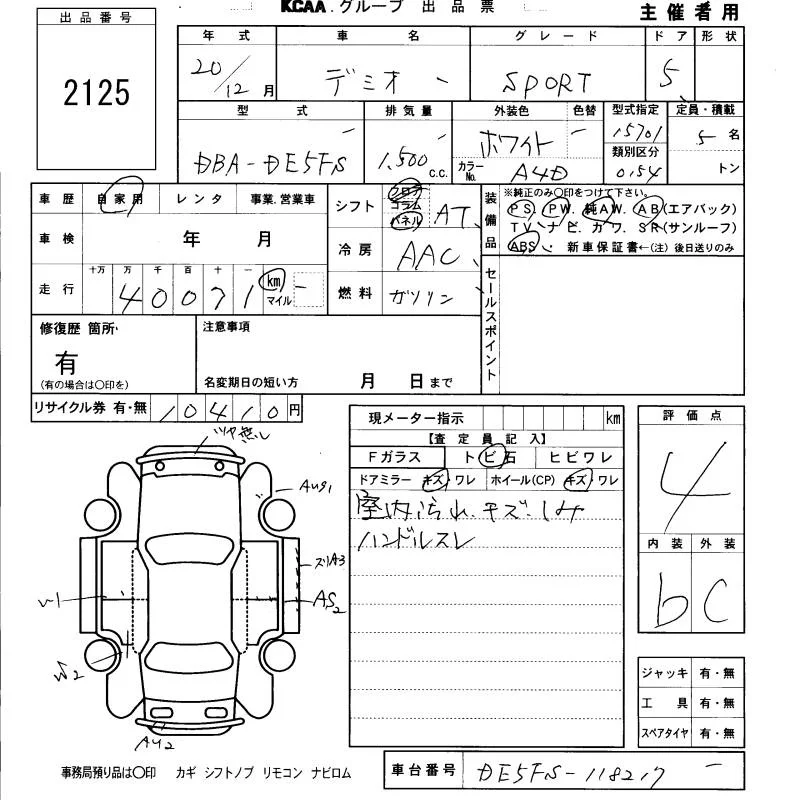 KCAA.グループ 出品票
主催者用
出品番号
2125
年式 車名 グレード ドア 形状
20/12月 デミオ ー SPORT 5
型式 排気量 外装色 色替 型式指定 定員・積載
DBA-DE5FS ー 1,500 C.C. ホワイト ー 15701 5 名
カラーNo. A4D 類別区分 0154 トン
車歴 自家用 レンタ 事業.営業車
車検 年 月
走行 十万 万 千 百 十 一
40071 km マイル ー
シフト フロア コラム パネル AT
冷房 AAC
燃料 ガソリン
装備品
※純正のみ〇印をつけて下さい。
PS. PW. 純AW. AB(エアバック)
TV. ナビ. カワ. SR(サンルーフ)
ABS. 新車保証書←(注) 後日送りのみ
セールスポイント
修復歴 箇所
有
(有の場合は〇印を)
注意事項
名変期日の短い方 月 日まで
リサイクル券 有・無 10410円
現メーター指示 km
【査定員記入】
Fガラス トビ石 ヒビワレ
ドアミラー キズ・ワレ ホイール(CP) キズ・ワレ
室内汚れ.キズ.しみ
ハンドルスレ
評価点
4
内装 外装
b C
ジャッキ 有・無
工具 有・無
スペアタイヤ 有・無
ツヤ無し
AU91
ズリA3
AS2
AU2
事務局預り品は〇印 カギ シフトノブ リモコン ナビロム
車台番号 DE5FS-118217 ー